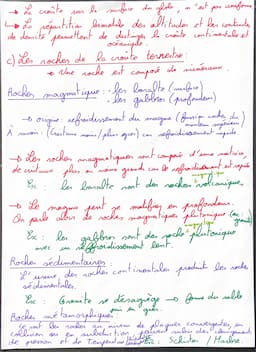 → La croûte sur la surface du globe, n'est pas uniforme
→ La répartition bimodale des altitudes et les contrastes
de densité permettent de distinguer la croûte continentale et
océanique.
c) Les roches de la croûte terrestre:
→ Une roche est composé de minéraux.
Roches magmatiques: - les basalte (surface)
- les gabbros (profondeur)
→ origine: refroidissement du magma
À mam: (Cristaux moins / plus gros) car refroidissement rapide
→ Les roches magmatiques sont composé d'une matrice
de cristaux plus ou moins grands car le refroidissement est rapide
Ex: les basalte sont des roches volcaniques
→ Le magma peut se solidifier en profondeur.
On parle alors de roches magmatiques plutonique
Ex: les gabbros sont des roche plutonique
avec un refroidissement lent.
Roches sédimentaires
L'usure des roches continentales produit les roches
sédimentales.
Ex: Granite se désagrège → forme du sable
puis un grès.
Roches métamorphiques:
Ce sont les roches au niveau de plaques convergentes, en
collision ou en subduction peuvent subir des changements
de pression et de température Ex: Schistes / Marbre